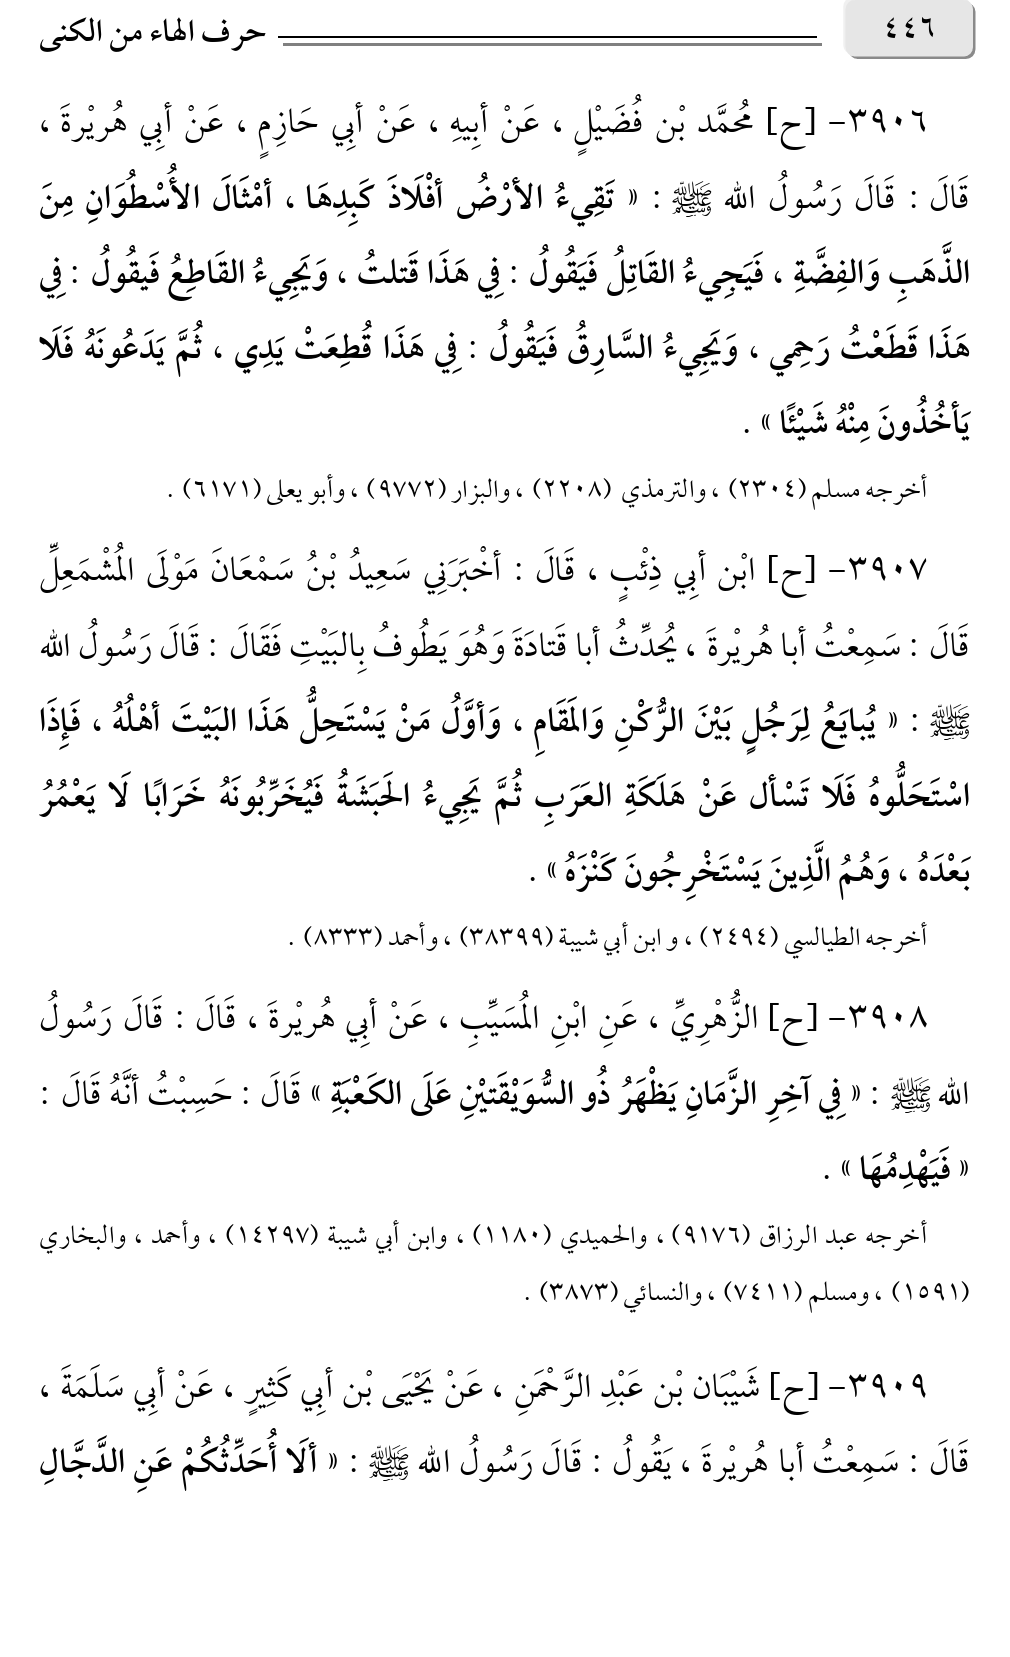 ٤٤٦ حرف الهاء من الكنى
٣٩٠٦- [ح] مُحمَّد بْن فُضَيْلٍ ، عَنْ أَبِيهِ ، عَنْ أَبِي حَازِمٍ ، عَنْ أَبِي هُريْرةَ ،
قَالَ : قَالَ رَسُولُ الله ﷺ : « تَقِيءُ الأرْضُ أفْلَاذَ كَبِدِهَا ، أمْثَالَ الأُسْطُوَانِ مِنَ
الذَّهَبِ وَالفِضَّةِ ، فَيَجِيءُ القَاتِلُ فَيَقُولُ : فِي هَذَا قَتلتُ ، وَيَجِيءُ القَاطِعُ فَيقُولُ : فِي
هَذَا قَطَعْتُ رَحِمِي ، وَيَجِيءُ السَّارِقُ فَيَقُولُ : فِي هَذَا قُطِعَتْ يَدِي ، ثُمَّ يَدَعُونَهُ فَلَا
يَأخُذُونَ مِنْهُ شَيْئًا » .
أخرجه مسلم (٢٣٠٤) ، والترمذي (٢٢٠٨) ، والبزار (٩٧٧٢) ، وأبو يعلى (٦١٧١) .
٣٩٠٧- [ح] ابْن أبِي ذِئْبٍ ، قَالَ : أخْبَرَنِي سَعِيدُ بْنُ سَمْعَانَ مَوْلَى الْمُشْمَعِلِّ
قَالَ : سَمِعْتُ أبا هُريْرةَ ، يُحدِّثُ أبا قَتادَةَ وَهُوَ يَطُوفُ بِالبَيْتِ فَقَالَ : قَالَ رَسُولُ الله
ﷺ : « يُبايَعُ لِرَجُلٍ بَيْنَ الرُّكْنِ وَالمَقَامِ ، وَأوَّلُ مَنْ يَسْتَحِلُّ هَذَا البَيْتَ أهْلُهُ ، فَإِذَا
اسْتَحَلُّوهُ فَلَا تَسْأل عَنْ هَلَكَةِ العَرَبِ ثُمَّ يَجِيءُ الحَبَشَةُ فَيُخَرِّبُونَهُ خَرَابًا لَا يَعْمُرُ
بَعْدَهُ ، وَهُمُ الَّذِينَ يَسْتَخْرِجُونَ كَنْزَهُ » .
أخرجه الطيالسي (٢٤٩٤) ، و ابن أبي شيبة (٣٨٣٩٩) ، وأحمد (٨٣٣٣) .
٣٩٠٨- [ح] الزُّهْرِيِّ ، عَنِ ابْنِ المُسَيِّبِ ، عَنْ أبي هُريْرةَ ، قَالَ : قَالَ رَسُولُ
الله ﷺ : « فِي آخِرِ الزَّمَانِ يَظْهَرُ ذُو السُّوَيْقَتيْنِ عَلَى الكَعْبَةِ » قَالَ : حَسِبْتُ أنَّهُ قَالَ :
« فَيَهْدِمُهَا » .
أخرجه عبد الرزاق (٩١٧٦) ، والحميدي (١١٨٠) ، وابن أبي شيبة (١٤٢٩٧) ، وأحمد ، والبخاري
(١٥٩١) ، ومسلم (٧٤١١) ، والنسائي (٣٨٧٣) .
٣٩٠٩- [ح] شَيْبَان بْن عَبْدِ الرَّحْمَنِ ، عَنْ يَحْيَى بْن أبي كَثِيرٍ ، عَنْ أبي سَلَمَةَ ،
قَالَ : سَمِعْتُ أبا هُريْرةَ ، يَقُولُ : قَالَ رَسُولُ الله ﷺ : « ألَا أُحَدِّثُكُمْ عَنِ الدَّجَّالِ